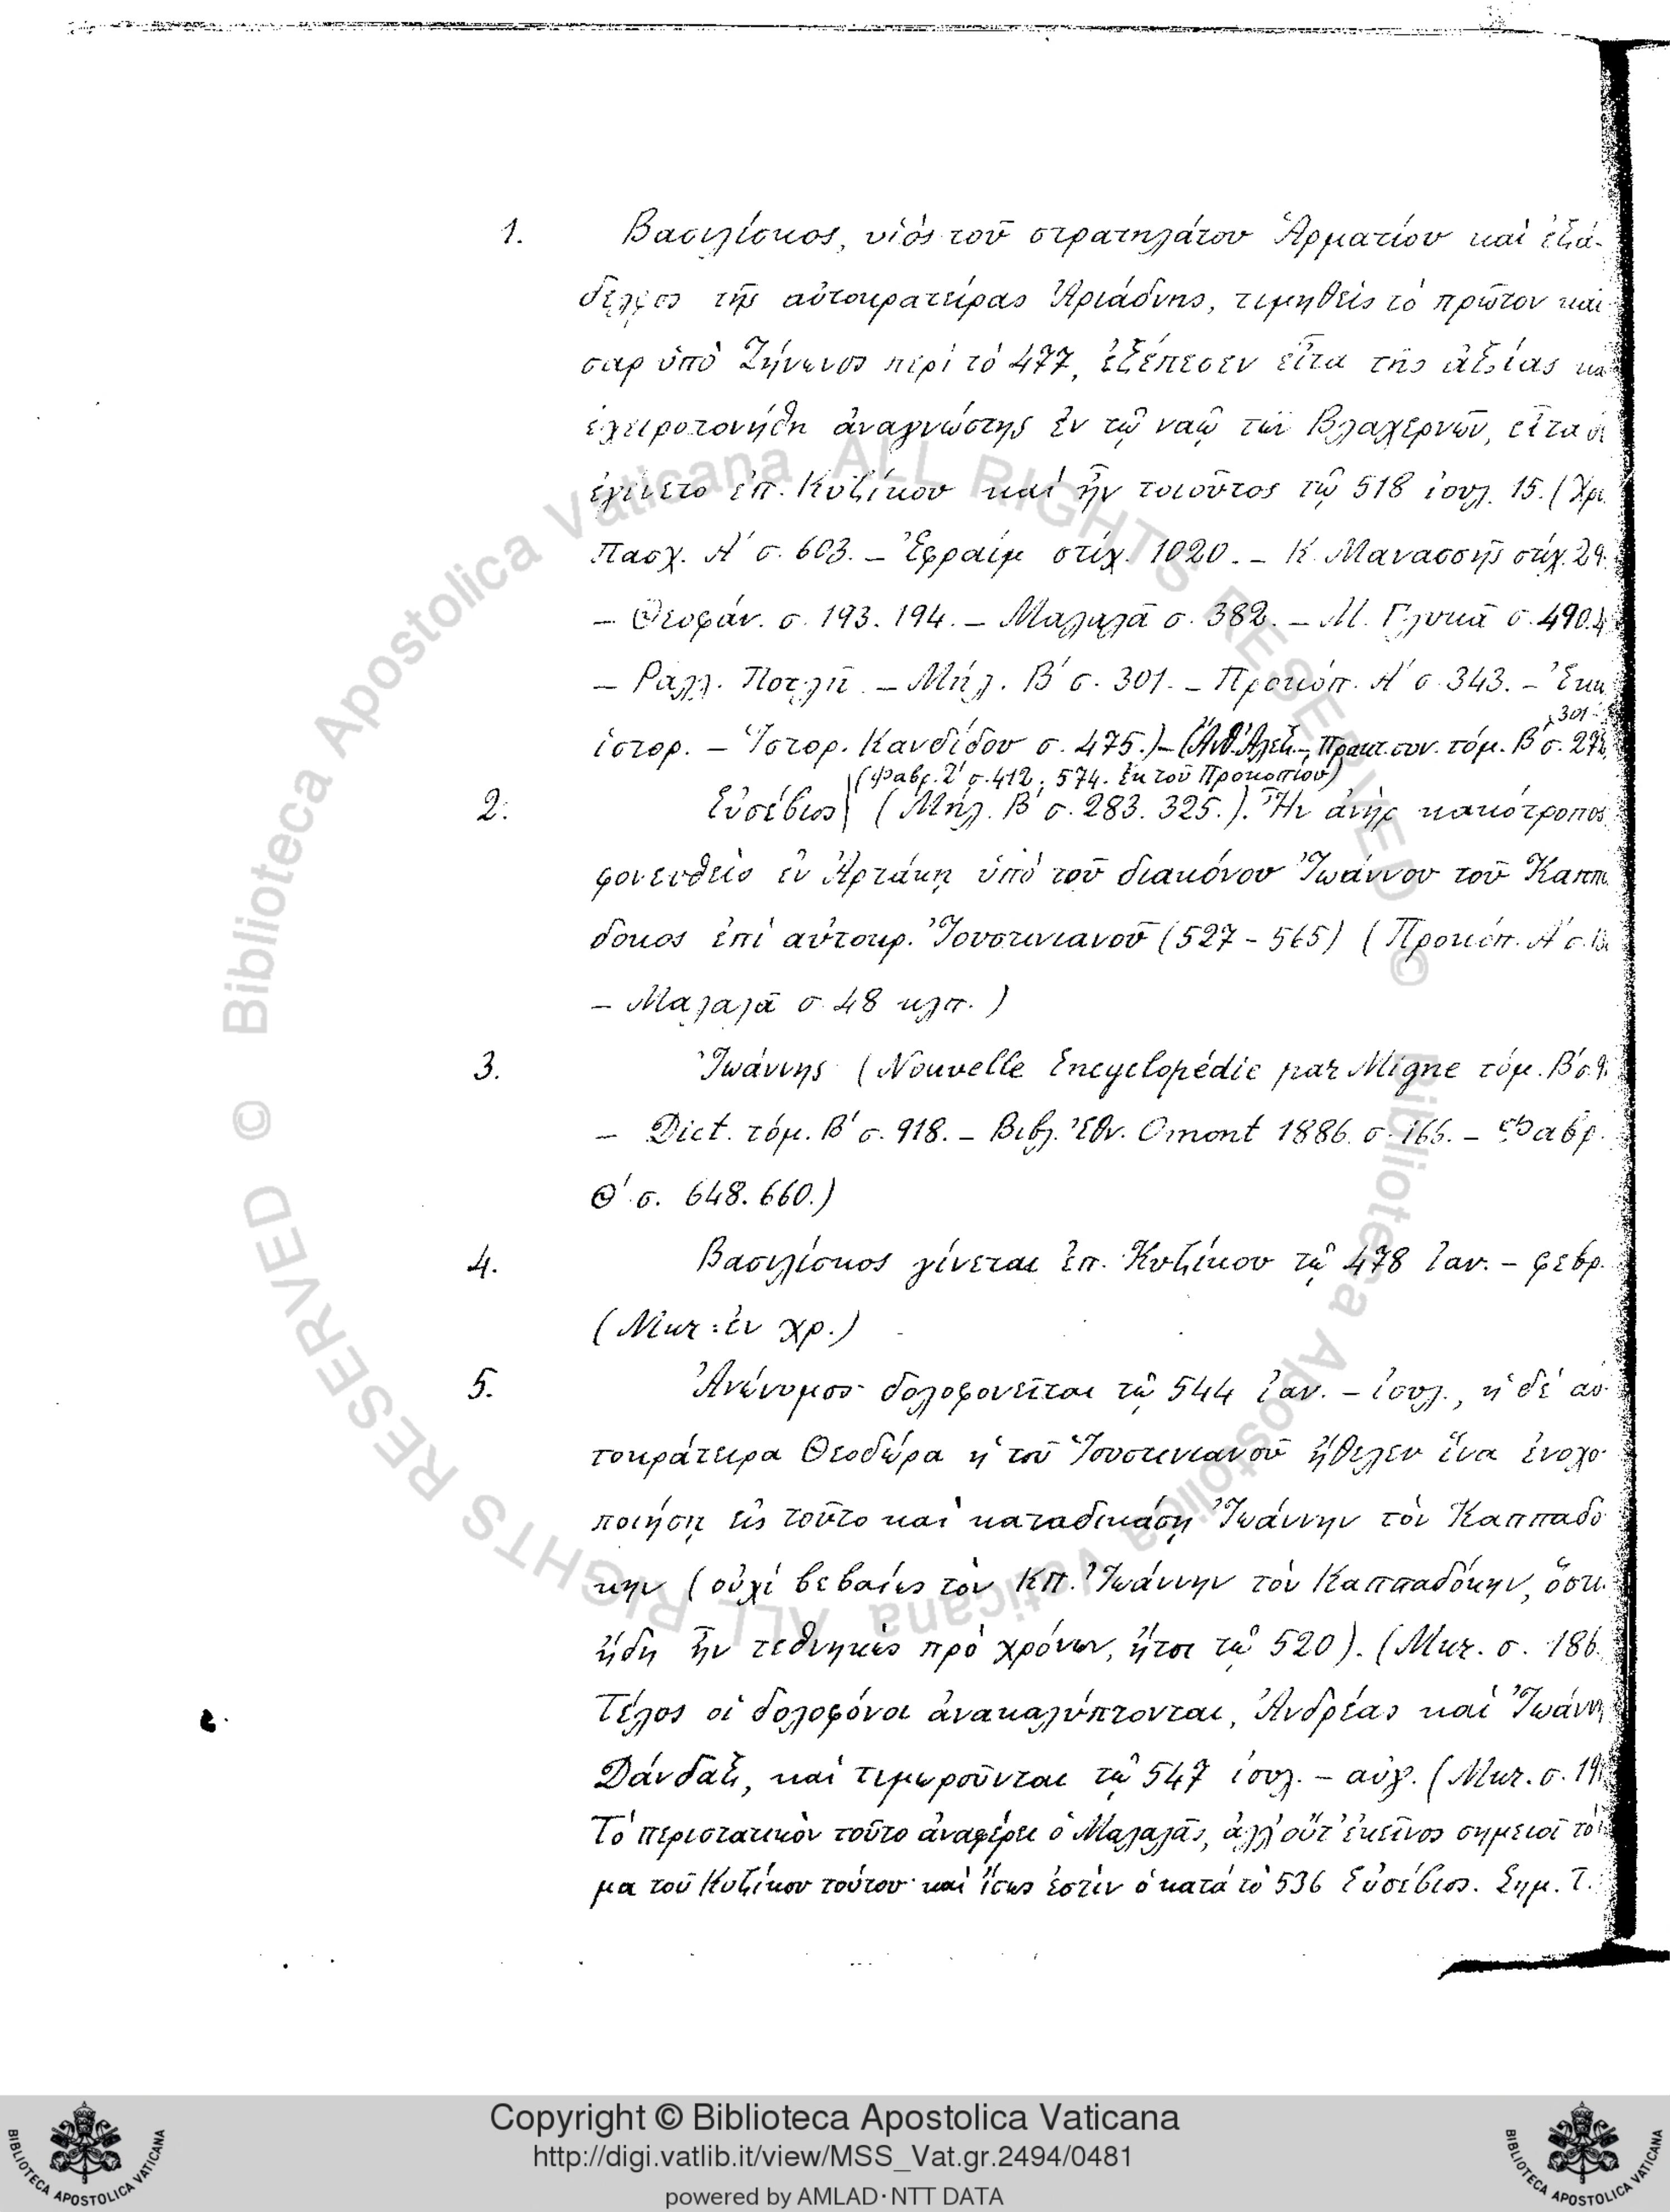 1. Βασιλίσκος, υἱὸς τοῦ στρατηλάτου Ἁρματίου καὶ ἐξά-
δελφος τῆς αὐτοκρατείρας Ἀριάδνης, τιμηθεὶς τὸ πρῶτον καί-
σαρ ὑπὸ Ζήνωνος περὶ τὸ 477, ἐξέπεσεν εἶτα τῆς ἀξίας
ἐχειροτονήθη ἀναγνώστης ἐν τῷ ναῷ τῶν Βλαχερνῶν, εἶτα
ἐγένετο ἐπ. Κυζίκου καὶ ἦν τοιοῦτος τῷ 518 ἰουλ. 15. (
Πασχ. Α΄ σ. 603. – Ἐφραὶμ στίχ. 1020. – Κ. Μανασσῆς στίχ.
– Θεοφάν. σ. 193. 194. – Μαλαλᾶ σ. 382. – Μ. Γλυκᾶ σ. 490.
– Ραλλ. Ποτλῆ. – Μήλ. Β΄ σ. 301. – Προκόπ. Α΄ σ. 343. –
301
ἱστορ. – Ἱστορ. Κανδίδου σ. 475.) – (Ἀνθ. Ἀλεξ., Πρακτ. συν. τόμ. Β΄ σ.
(Φαβρ. Ζ΄ σ. 412, 574. ἐκ τοῦ Προκοπίου)
2. Εὐσέβιος (Μήλ. Β΄ σ. 283. 325.). Ἦν ἀνὴρ κακότροπος
φονευθεὶς ἐν Ἀρτάκῃ ὑπὸ τοῦ διακόνου Ἰωάννου τοῦ Καππα
δοκος ἐπὶ αὐτοκρ. Ἰουστινιανοῦ (527 – 565) (Προκόπ. Α΄ σ.
– Μαλαλᾶ σ. 48 κλπ.)
3. Ἰωάννης (Nouvelle Encyclopédie par Migne τόμ. Β΄ σ.
– Dict. τόμ. Β΄ σ. 918. – Βιβλ. Ἐθν. Omont 1886. σ. 166. – Φαβρ.
Θ΄ σ. 648. 660.)
4. Βασιλίσκος γίνεται ἐπ. Κυζίκου τῷ 478 ἰαν. – φεβρ.
(Μυρ: ἐν χρ.)
5. Ἀνώνυμος δολοφονεῖται τῷ 544 ἰαν. – ἰουλ., ἡ δὲ αὐ-
τοκράτειρα Θεοδώρα ἡ τοῦ Ἰουστινιανοῦ ἤθελεν ἵνα ἐνοχο-
ποιήσῃ εἰς τοῦτο καὶ καταδικάσῃ Ἰωάννην τὸν Καππαδό-
κην (οὐχὶ βεβαίως τὸν ΚΠ. Ἰωάννην τὸν Καππαδόκην, ὅστι
ἤδη ἦν τεθνηκὼς πρὸ χρόνων, ἤτοι τῷ 520). (Μυρ. σ. 186.
Τέλος οἱ δολοφόνοι ἀνακαλύπτονται, Ἀνδρέας καὶ Ἰωάνν
Δάνδαξ, καὶ τιμωροῦνται τῷ 547 ἰουλ. – αὐγ. (Μυρ. σ.
Τὸ περιστατικὸν τοῦτο ἀναφέρει ὁ Μαλαλᾶς, ἀλλ' οὔτ' ἐκεῖνος σημειοῖ τὸ
μα τοῦ Κυζίκου τούτου· καὶ ἴσως ἐστὶν ὁ κατὰ τὸ 536 Εὐσέβιος. Σημ. Τ.
© Biblioteca Apostolica Vaticana ALL RIGHTS RESERVED
© Biblioteca Apostolica Vaticana ALL RIGHTS RESERVED
BIBLIOTECA APOSTOLICA VATICANA
Copyright © Biblioteca Apostolica Vaticana
http://digi.vatlib.it/view/MSS_Vat.gr.2494/0481
powered by AMLAD·NTT DATA
BIBLIOTECA APOSTOLICA VATICANA